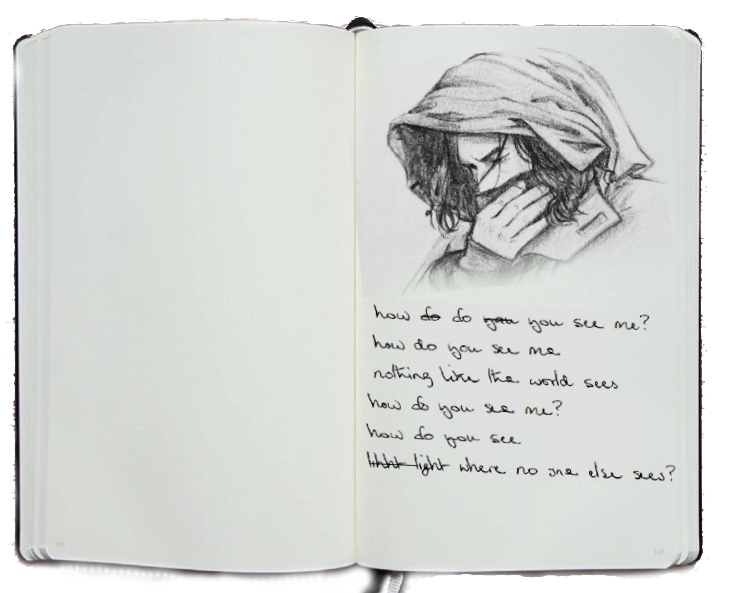 how do do you you see me?
how do you see me
nothing like the world sees
how do you see me?
how do you see
light where no one else sees?